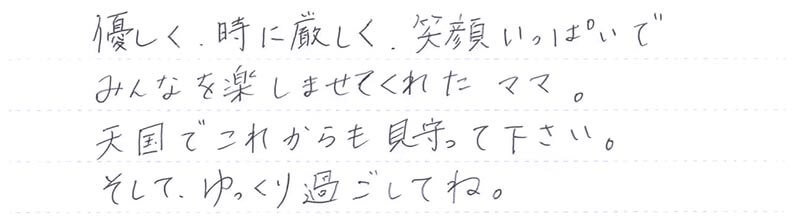 優しく、時に厳しく、笑顔いっぱいで
みんなを楽しませてくれたママ。
天国でこれからも見守って下さい。
そして、ゆっくり過ごしてね。